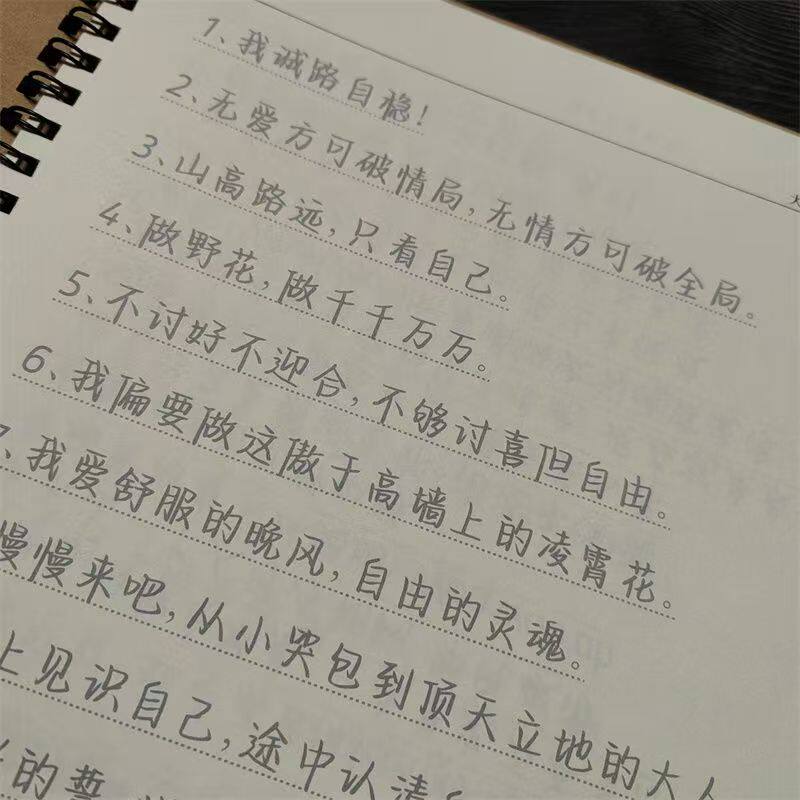 1、我诚路自稳！
2、无爱方可破情局，无情方可破全局。
3、山高路远，只看自己。
4、做野花，做千千万万。
5、不讨好不迎合，不够讨喜但自由。
6、我偏要做这傲于高墙上的凌霄花。
、我爱舒服的晚风，自由的灵魂。
慢慢来吧，从小哭包到顶天立地的大人
上见识自己，途中认清
的誓